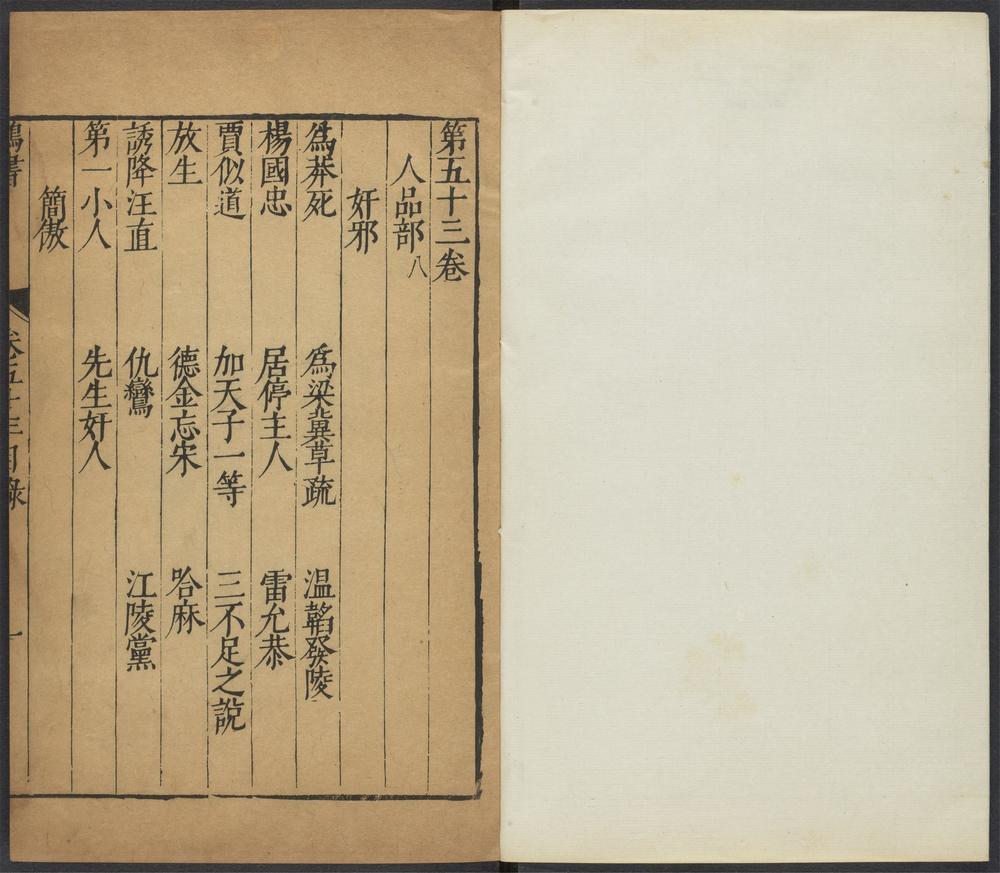 第五十三卷
人品部八
奸邪
為莽死　為梁冀草疏　温韜發陵
楊國忠　居停主人　雷允恭
賈似道　加天子一等　三不足之說
放生　德金忘宋　哈麻
誘降汪直　仇鸞　江陵黨
第一小人　先生奸人
簡傲
卷五十三目錄　一